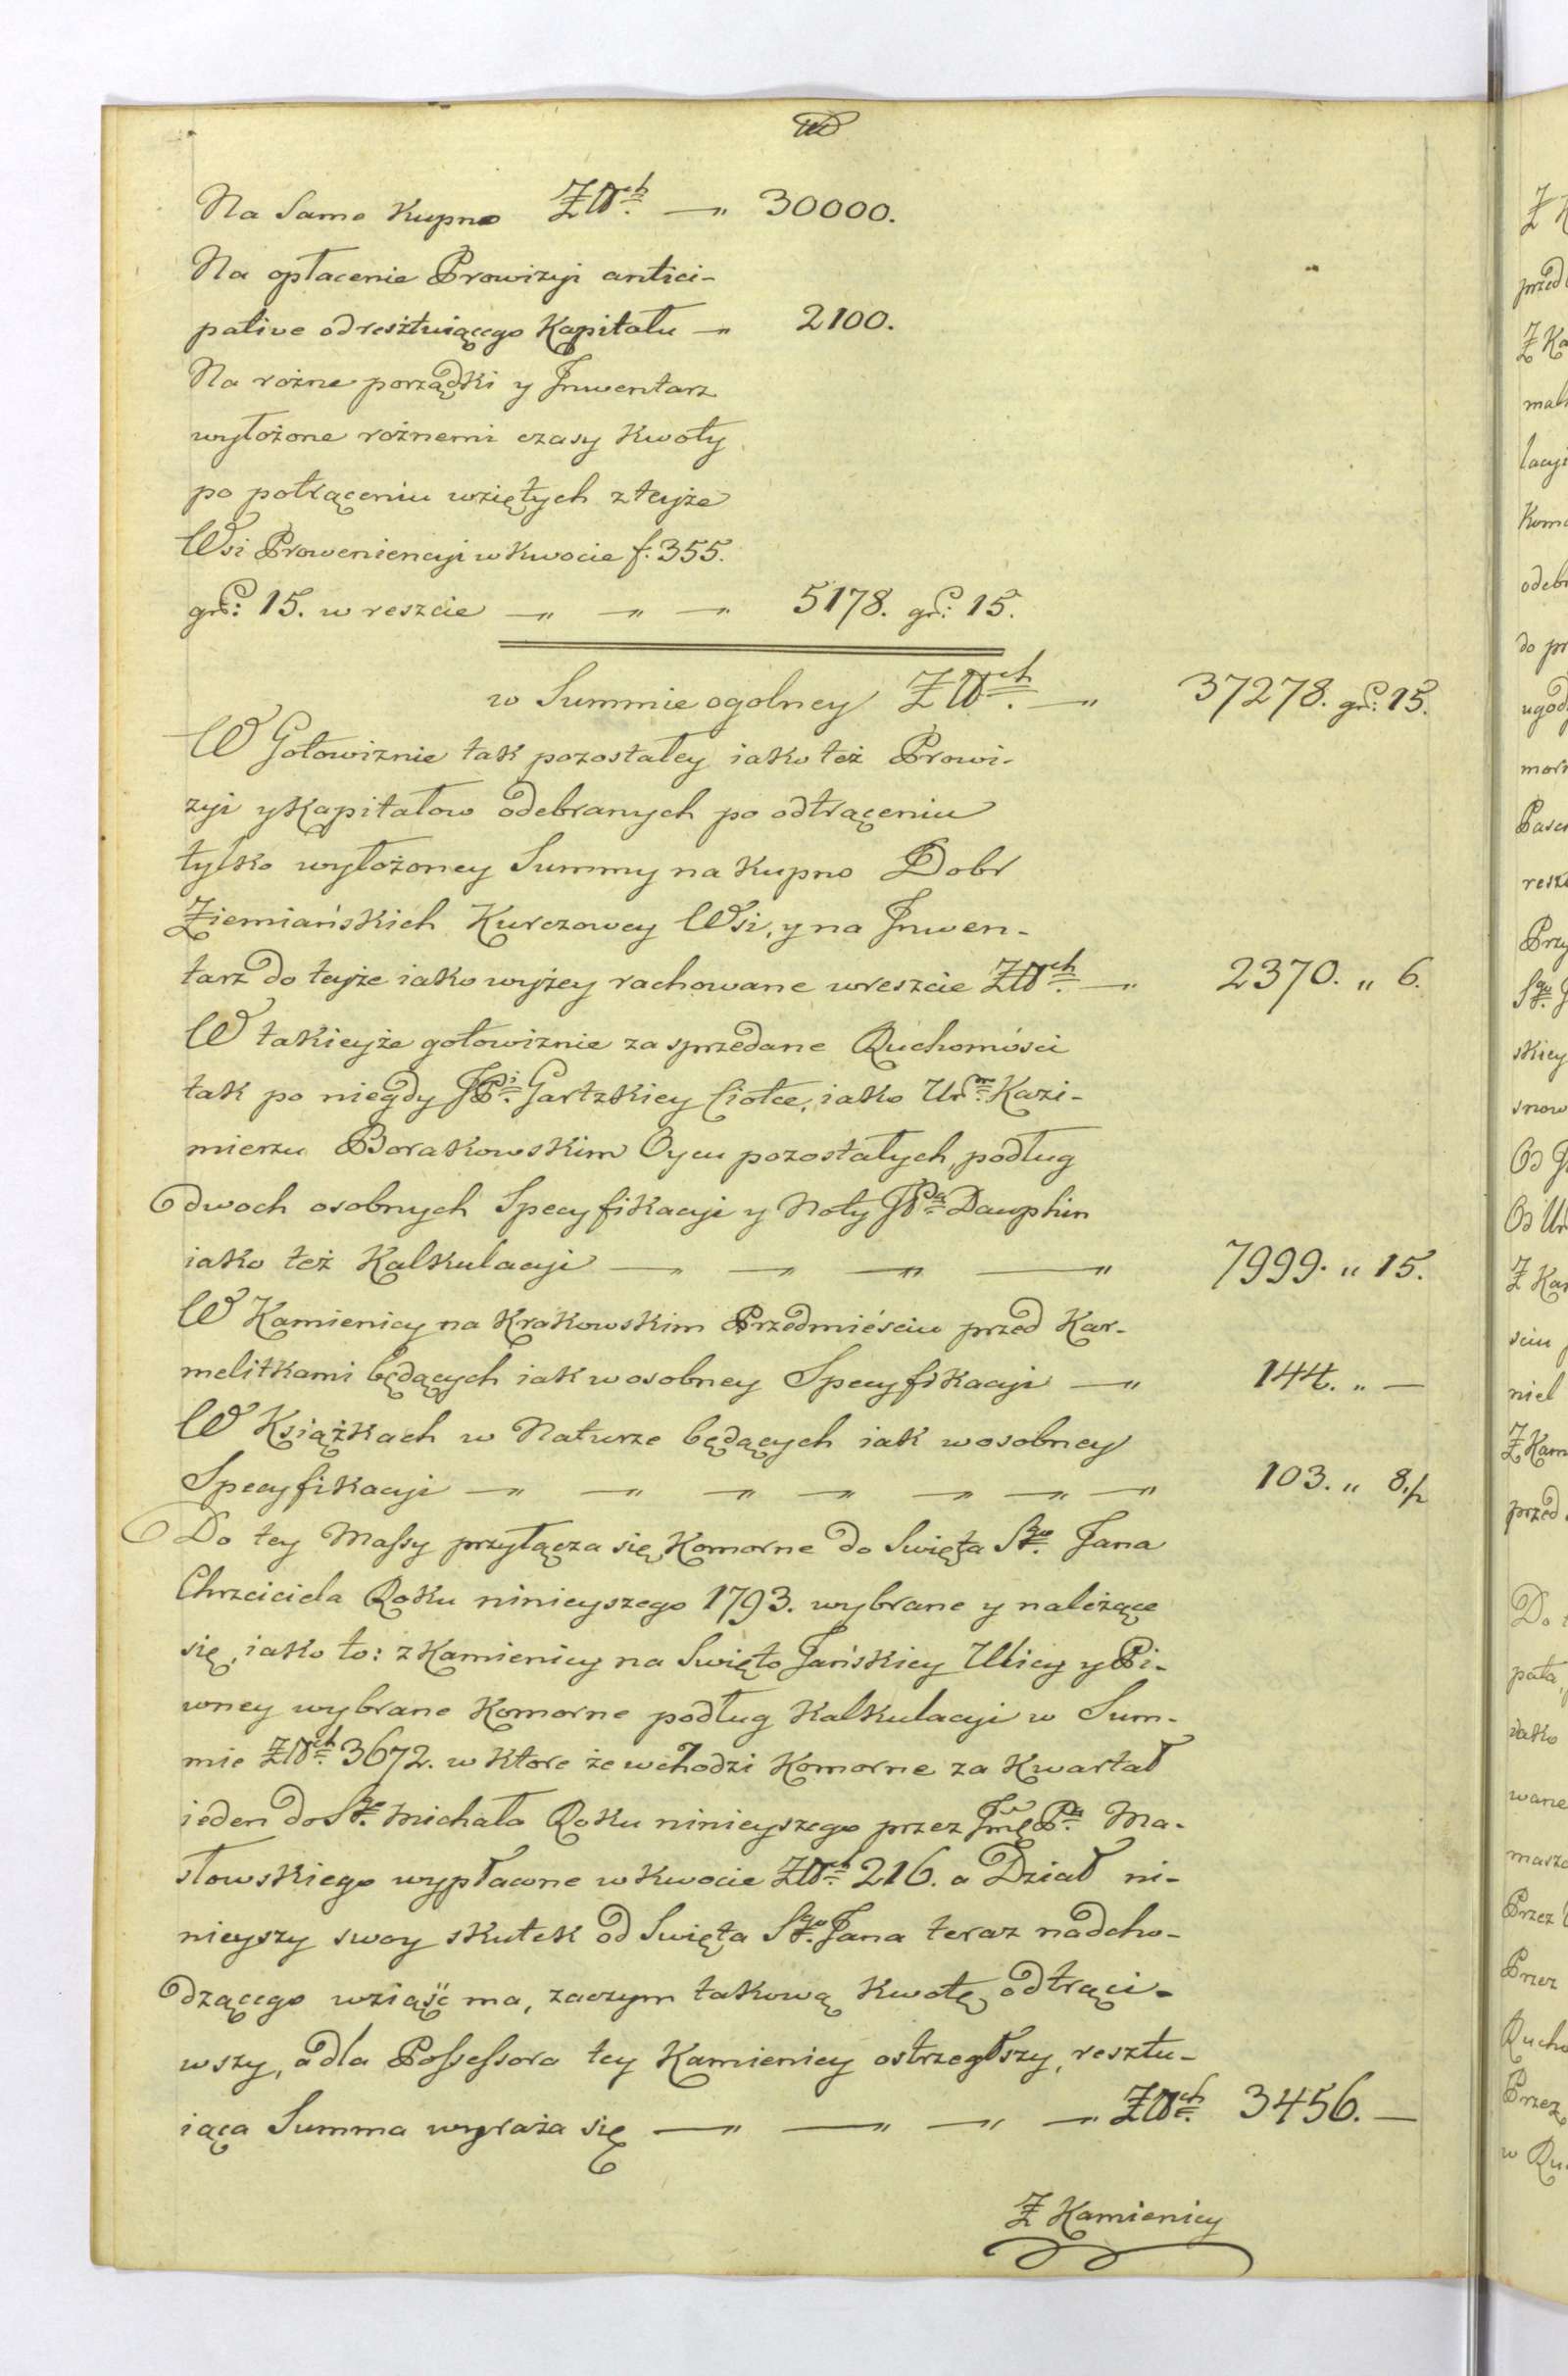 Na Samo Kupno Złłch — 30000.
Na opłacenie Prowizyi antici-
pative od resztuiącego Kapitału — 2100.
Na rożne porządki y Inwentarz
wyłożone rożnemi czasy Kwoty
po potrąceniu wziętych z teyże
Wsi Proweniencyi w Kwocie f. 355.
gr: 15. w reszcie — — — 5178. gr: 15.
w Summie ogolney Złłch. — 37278. gr: 15.
W Gotowiznie tak pozostałey iako też Prowi-
zyi y Kapitałow odebranych po odtrąceniu
tylko wyłożoney Summy na Kupno Dobr
Ziemiańskich Kurczowey Wsi, y na Inwen-
tarz do teyże iako wyżey rachowane w reszcie Złłch. — 2370. " 6.
W takieyże gotowiznie za sprzedane Ruchomości
tak po niegdy JPi. Gartzkiey Ciotce, iako Urm. Kazi-
mierzu Borakowskim Oycu pozostałych, podług
dwoch osobnych Specyfikacyi y Noty JPa. Dauphin
iako też Kalkulacyi — — — — 7999. " 15.
W Kamienicy na Krakowskim Przedmieściu przed Kar-
melitkami będących iak w osobney Specyfikacyi — 144. " —
W Książkach w Naturze będących iak w osobney
Specyfikacyi — — — — — — — 103. " 8.
Do tey Massy przyłącza się Komorne do Swięta Sgo. Jana
Chrzciciela Roku ninieyszego 1793. wybrane y należące
się, iako to: z Kamienicy na Swięto Jańskiey Ulicy y Pi-
wney wybrane Komorne podług Kalkulacyi w Sum-
mie Złłch. 3672. w Ktore że wchodzi Komorne za Kwartał
ieden do Sgo. Michała Roku ninieyszego przez Jmę Pa. Ma-
słowskiego wypłacone w Kwocie Złłch. 216. a Dział ni-
nieyszy swoy skutek od Swięta Sgo. Jana teraz nadcho-
dzącego wziąść ma, zaczym takową Kwotę odtrąci-
wszy, a dla Possessora tey Kamienicy ostrzegłszy, resztu-
iąca Summa wyraża się — — — — Złłch. 3456. —
Z Kamienicy